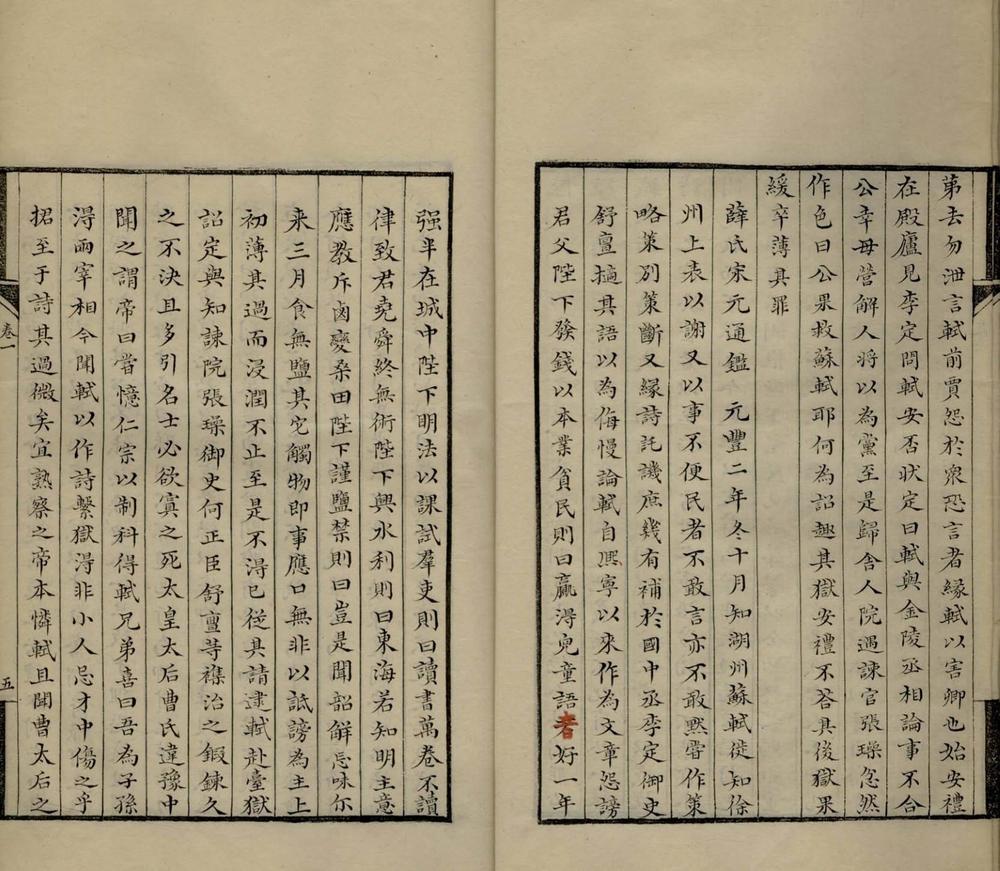 第去勿泄言軾前賈怨於衆恐言者緣軾以害卿也始安禮
在殿廬見李定問軾安否狀定曰軾與金陵丞相論事不合
公幸毋營解人將以為黨至是歸舍人院遇諫官張璪忽然
作色曰公果救蘇軾耶何為詔趣其獄安禮不荅其後獄果
緩卒薄其罪
薛氏宋元通鑑 元豐二年冬十月知湖州蘇軾徙知徐
州上表以謝又以事不便民者不敢言亦不敢默眎作策
略策別策斷又緣詩託譏庶幾有補於國中丞李定御史
舒亶擿其語以為侮慢論軾自熙寧以來作為文章怨謗
君父陛下發錢以本業貧民則曰贏淂兒童語音好一年
强半在城中陛下明法以課試羣吏則曰讀書萬卷不讀
律致君堯舜終無術陛下興水利則曰東海若知明主意
應教斥鹵變桑田陛下謹鹽禁則曰豈是聞韶解忘味尔
来三月食無鹽其它觸物即事應口無非以詆謗為主上
初薄其過而浸潤不止至是不淂已從其請逮軾赴臺獄
詔定與知諫院張璪御史何正臣舒亶等襍治之鍜鍊久
之不決且多引名士必欲寘之死太皇太后曹氏違豫中
聞之謂帝曰嘗憶仁宗以制科得軾兄弟喜曰吾為子孫
淂兩宰相今聞軾以作詩繫獄淂非小人忌才中傷之乎
捃至于詩其過微矣宜熟察之帝本憐軾且聞曹太后之
卷一
五